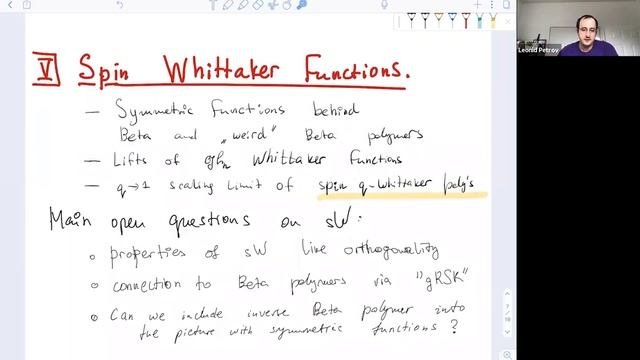 V Spin Whittaker Functions.
— Symmetric Functions behind
Beta and "weird" Beta polymers
— Lifts of gln Whittaker Functions
— q→1 scaling limit of spin q-Whittaker poly's
Main open questions on sW:
o properties of sW like orthogonality
o connection to Beta polymers via "gRSK"
o Can we include inverse Beta polymer into
the picture with symmetric functions?
Leonid Petrov